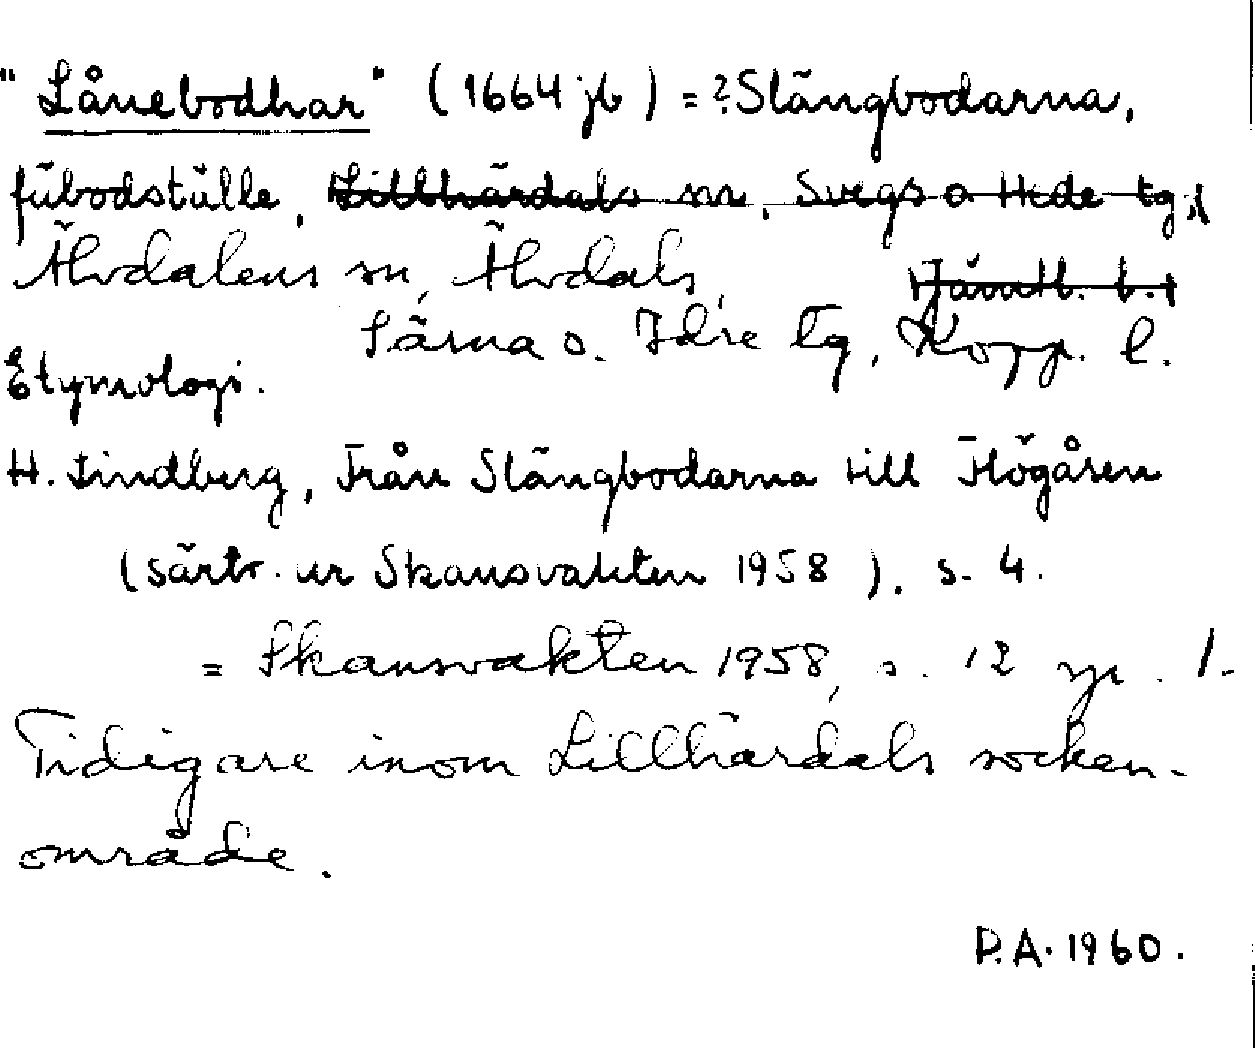 "Lånebodhar" (1664 jb) = ? Slängbodarna,
fäbodställe, Lillhärdals sn, Svegs o Hede tg,
Älvdalens sn, Älvdals, Jämtl. l.
Särna o. Idre tg, Kopp. l.
Etymologi.
H. Lindberg, Från Slängbodarna till Högåsen
(särtr. ur Skansvakten 1958), s. 4.
= Skansvakten 1958, s. 12 sp. 1.
Tidigare inom Lillhärdals socken-
område.
P.A. 1960.